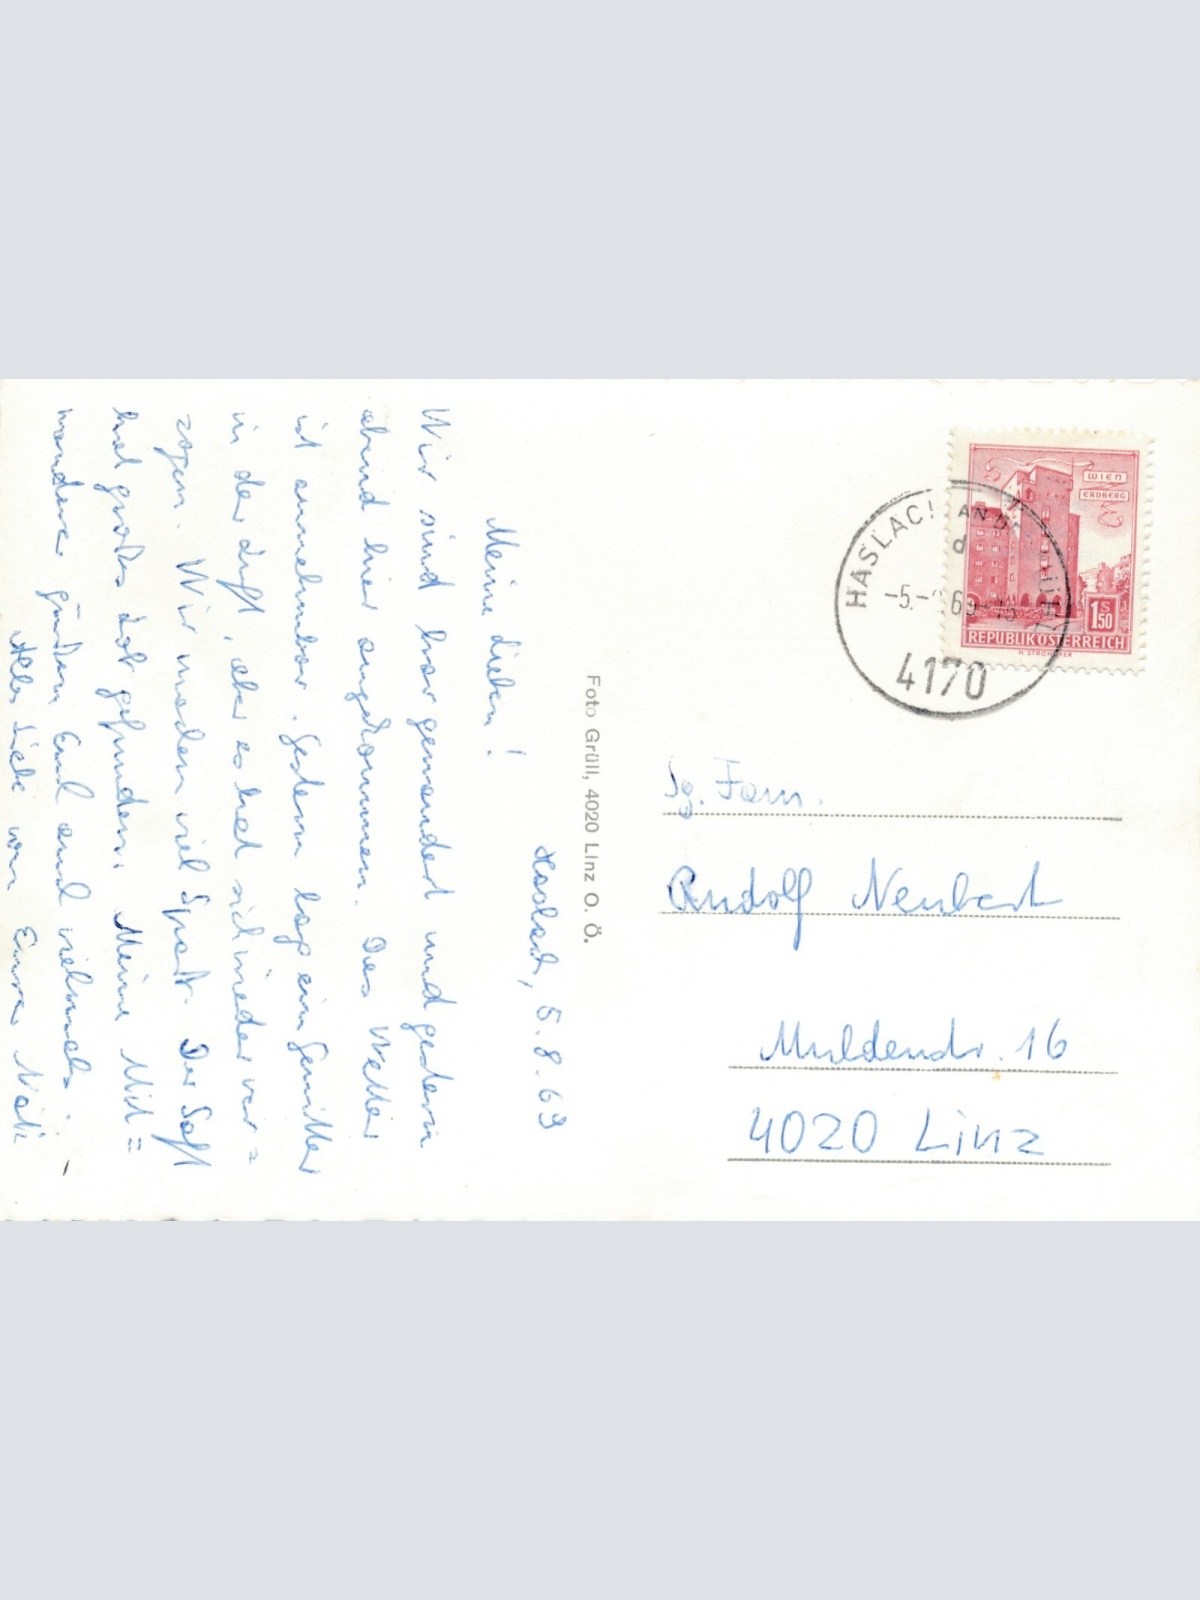 Haslach, 5.8.69
Meine Lieben!
Wir sind brav gewandert und gestern
abend hier angekommen. Das Wetter
ist annehmbar. Gestern lag ein Gewitter
in der Luft, aber es hat sich wieder ver=
zogen. Wir machen viel Spaß. Der Saft
hat großes Lob gefunden. Meine Mit=
wanderer grüßen Euch auch vielmals.
Alles Liebe von Eurer
Foto Grüll, 4020 Linz O. Ö.
WIEN
ERDBERG
1 S 50
REPUBLIK ÖSTERREICH
H. STROHOFER
HASLACH AN D
d
4170
Fam.
Rudolf Neubert
Muldenstr. 16
4020 Linz